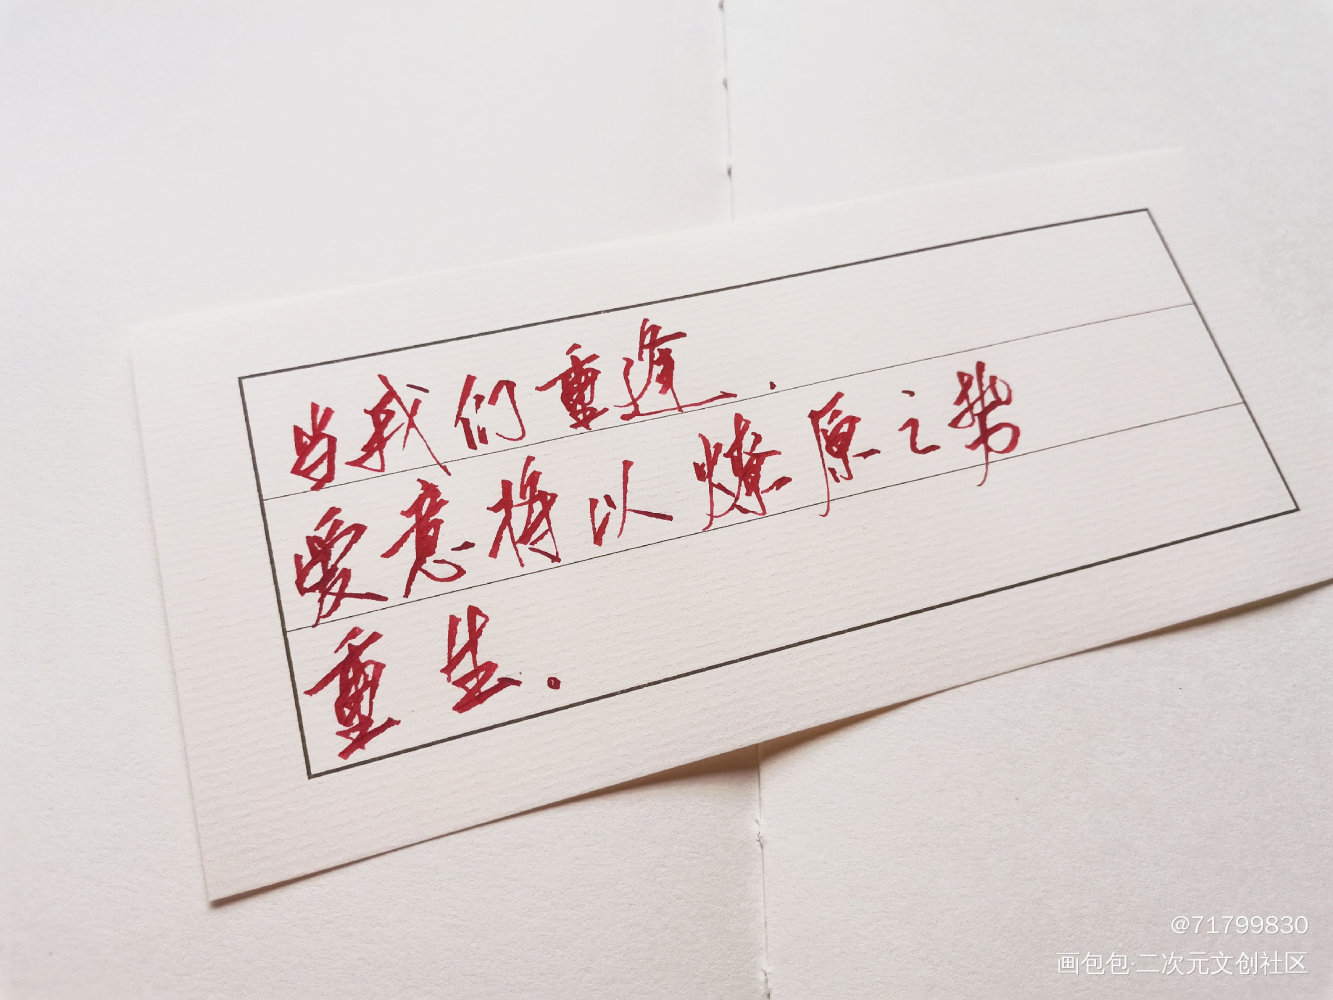 当我们重逢.
爱意将以燎原之势
重生。
@71799830
画包包·二次元文创社区